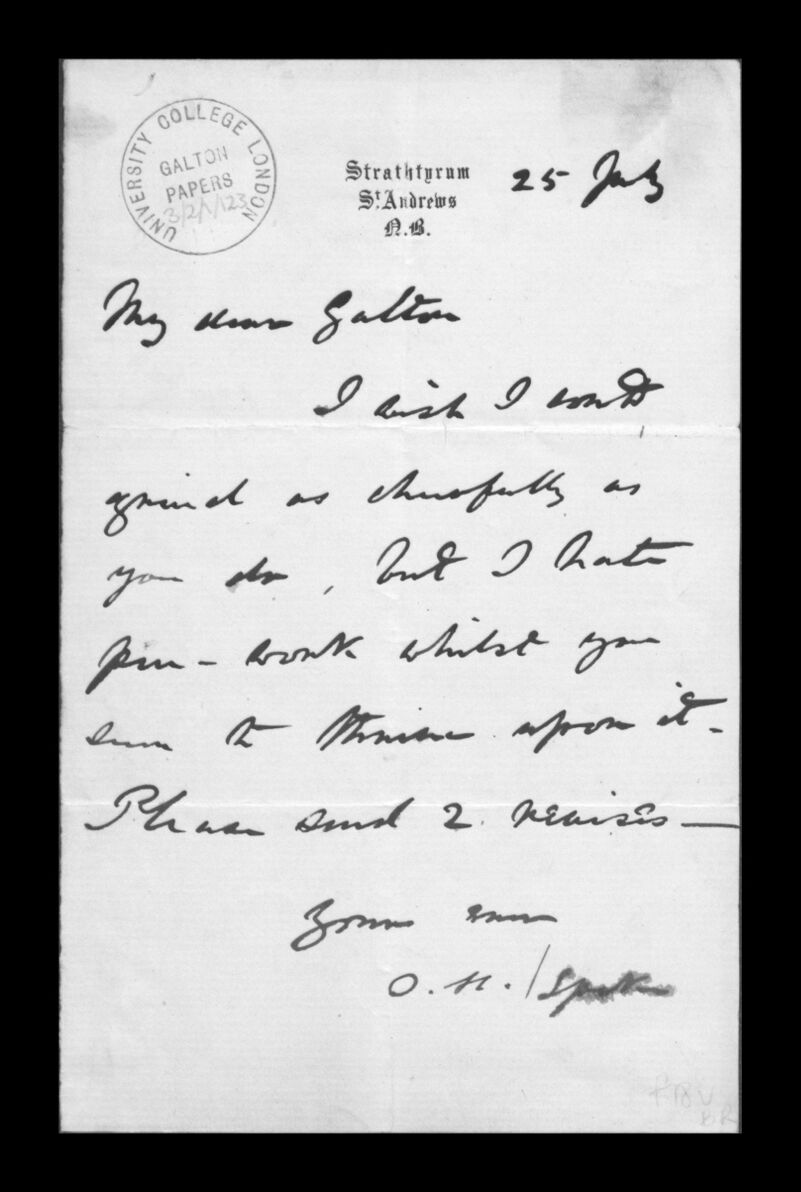 UNIVERSITY COLLEGE LONDON
GALTON
PAPERS
3/2/1/123
Strathtyrum
St. Andrews
N.B.
25 July
My dear Galton
I wish I could
grind as cheerfully as
you do, but I hate
pen-work whilst you
seem to thrive upon it-
Please send 2 revises—
Yours ever
J. H. Speke